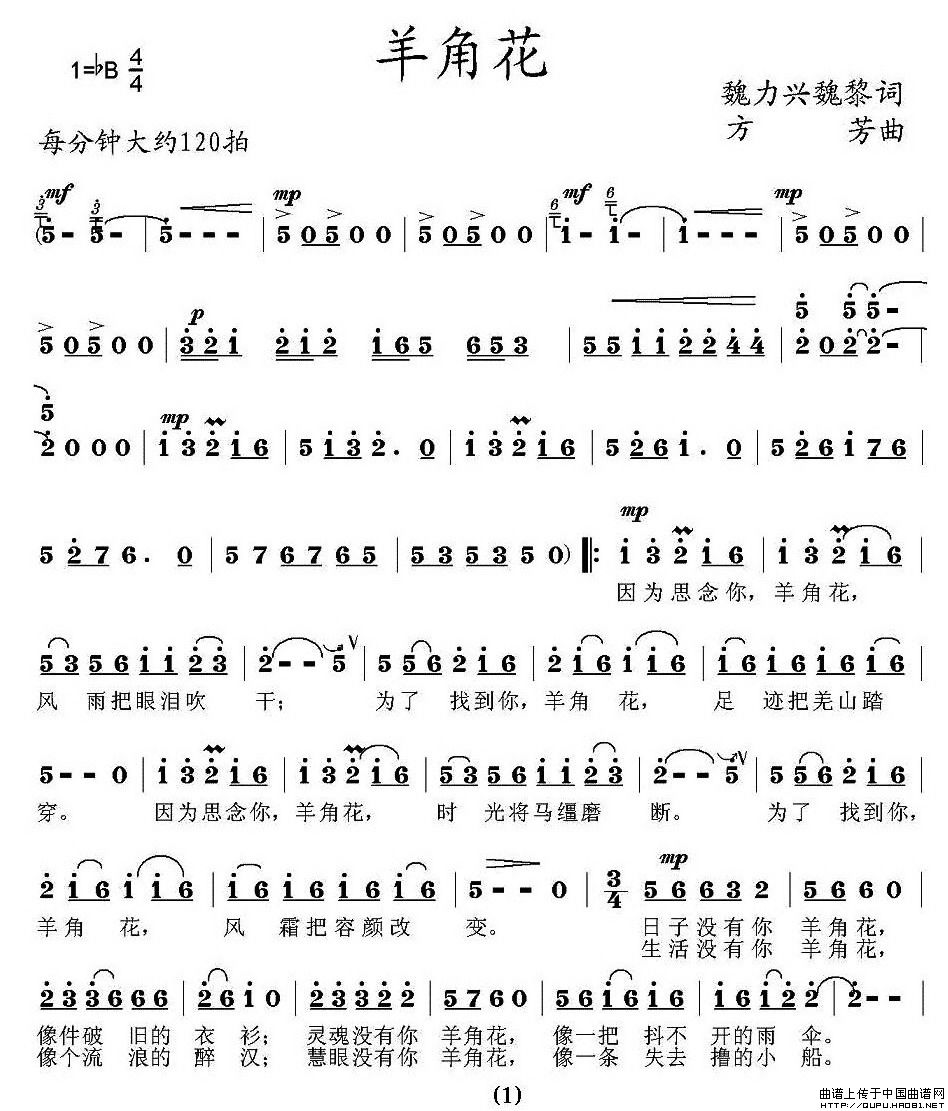 羊角花
1=♭B 4/4
魏力兴魏黎词
方 芳曲
每分钟大约120拍
mf mp mf mp
(5 - 5 - | 5 - - - | 5 0 5 0 0 | 5 0 5 0 0 | i - i - | i - - - | 5 0 5 0 0 |
p
5 0 5 0 0 | 3 2 i 2 i 2 i 6 5 6 5 3 | 5 5 i i 2 2 4 4 | 2 0 2 2 -
5 5 5 -
5
mp
2 0 0 0 | i 3 2 i 6 | 5 i 3 2 . 0 | i 3 2 i 6 | 5 2 6 i . 0 | 5 2 6 i 7 6 |
mp
5 2 7 6 . 0 | 5 7 6 7 6 5 | 5 3 5 3 5 0) ‖: i 3 2 i 6 | i 3 2 i 6 |
因为思念你，羊角花，
5 3 5 6 i i 2 3 | 2 - - 5 V | 5 5 6 2 i 6 | 2 i 6 i i 6 | i 6 i 6 i 6 i 6 |
风 雨把眼泪吹 干； 为了 找到你，羊角 花， 足 迹把羌山踏
5 - - 0 | i 3 2 i 6 | i 3 2 i 6 | 5 3 5 6 i i 2 3 | 2 - - 5 V | 5 5 6 2 i 6 |
穿。 因为思念你，羊角花， 时 光将马缰磨 断。 为了 找到你，
mp
2 i 6 i i 6 | i 6 i 6 i 6 i 6 | 5 - - 0 | 3/4 5 6 6 3 2 | 5 6 6 0 |
羊角 花， 风 霜把容颜改 变。 日子没有你 羊角花，
生活没有你 羊角花，
2 3 3 6 6 6 | 2 6 i 0 | 2 3 3 2 2 | 5 7 6 0 | 5 6 i 6 i 6 | i 6 i 2 2 | 2 - - |
像件破 旧的 衣 衫；灵魂没有你 羊角花， 像一把 抖不 开的雨 伞。
像个流 浪的 醉 汉；慧眼没有你 羊角花， 像一条 失去 撸的小 船。
(1)
曲谱上传于中国曲谱网
HTTP://QUPU.HAO81.NET